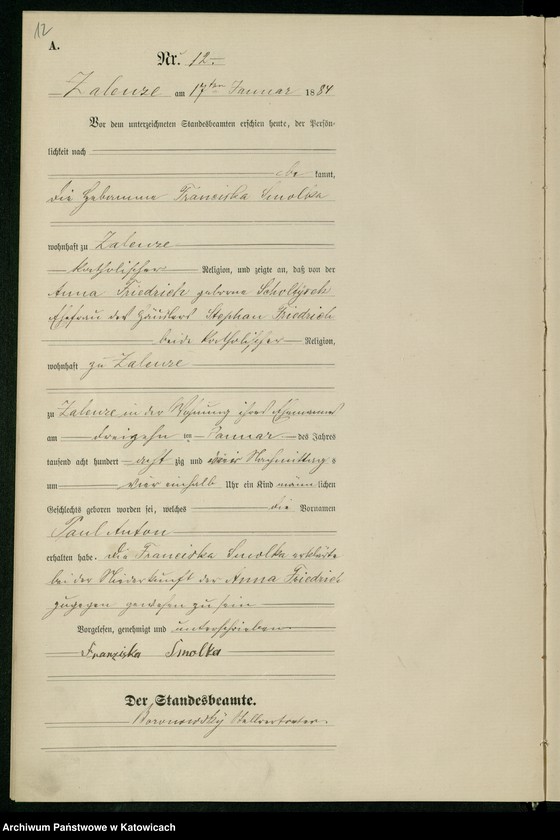 12
A.
Nr. 12
Zalenze am 17ten Januar 1884
Vor dem unterzeichneten Standesbeamten erschien heute, der Persön-
lichkeit nach
be kannt,
die Hebamme Franciska Smolka
wohnhaft zu Zalenze
katholischer Religion, und zeigte an, daß von der
Anna Friedrich geborne Scholtyseck
Ehefrau des Häuslers Stephan Friedrich
beide katholischer Religion,
wohnhaft zu Zalenze
zu Zalenze in der Wohnung ihres Ehemannes
am dreizehn ten Januar des Jahres
tausend acht hundert acht zig und vier Nachmittags
um vier einhalb Uhr ein Kind männlichen
Geschlechts geboren worden sei, welches die Vornamen
Paul Anton
erhalten habe. Die Franciska Smolka erklärte
bei der Niederkunft der Anna Friedrich
zugegen gewesen zu sein
Vorgelesen, genehmigt und unterschrieben
Franziska Smolka
Der Standesbeamte.
Stellvertreter.
Archiwum Państwowe w Katowicach